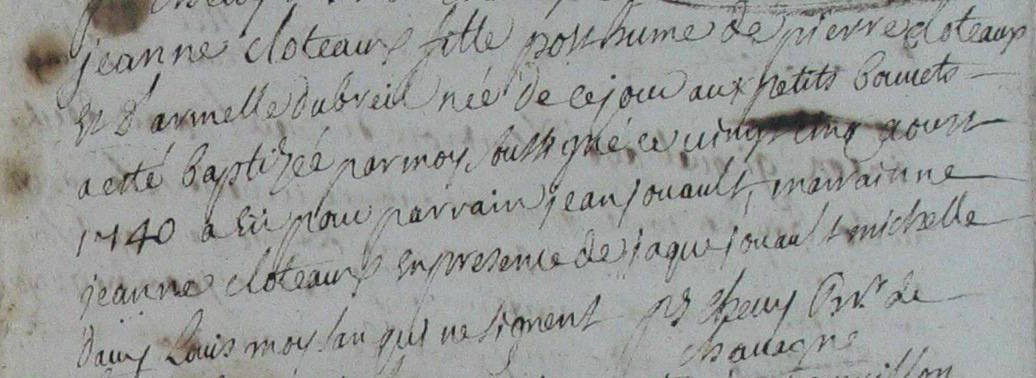 jeanne cloteaux fille posthume de pierre cloteaux
Et d'armelle dubreil née de ce jour aux petits bouuets
a esté baptizée par moy soussigné ce vingt cinq aoust
1740 a Eü pour parrain jean jouault, marrainne
jeanne cloteaux En presence de jaque jouault michelle
dauy Louis moysan qui ne signent pr de
chauagne